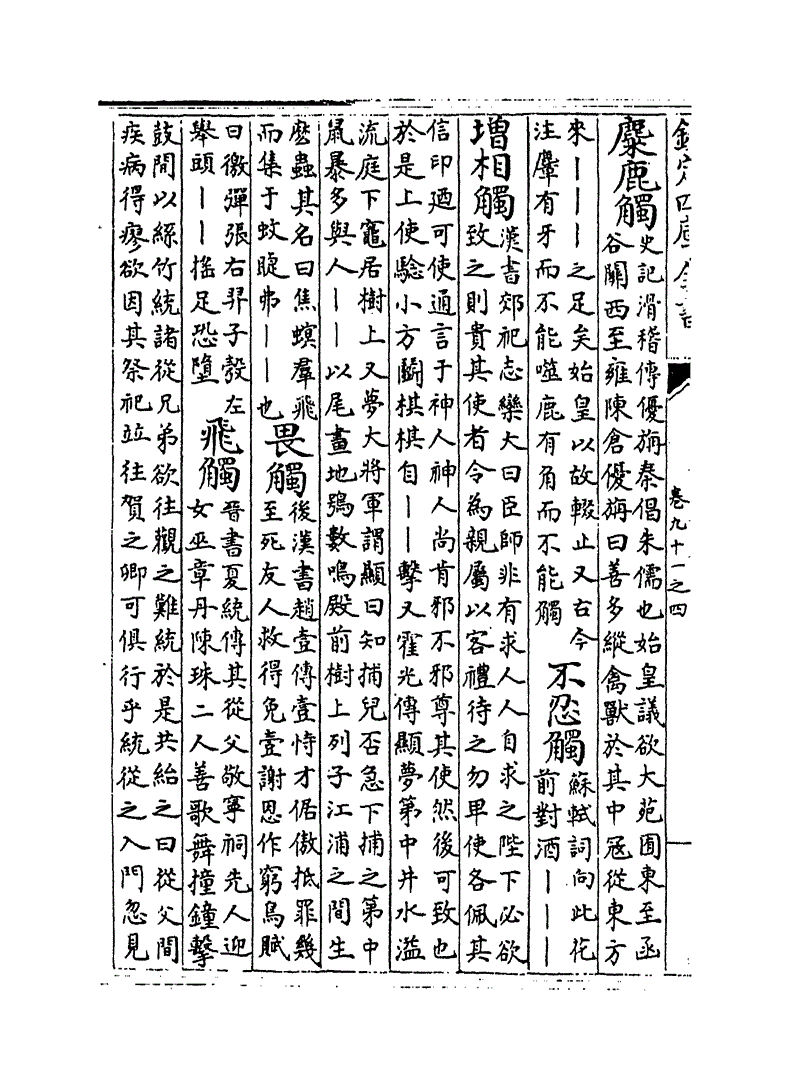 欽定四庫全書
卷九十一之四
麋鹿觸
史記滑稽傳優旃秦倡朱儒也始皇議欲大苑囿東至函
谷關西至雍陳倉優旃曰善多縱禽獸於其中冦從東方
來丨丨丨之足矣始皇以故輟止又古今
注麞有牙而不能噬鹿有角而不能觸
不忍觸
蘇軾詞向此花
前對酒丨丨丨
増相觸
漢書郊祀志欒大曰臣師非有求人人自求之陛下必欲
致之則貴其使者令為親屬以客禮待之勿卑使各佩其
信印廼可使通言于神人神人尚肯邪不邪尊其使然後可致也
於是上使驗小方鬭棋棋自丨丨擊又霍光傳顯夢第中井水溢
流庭下竈居樹上又夢大將軍謂顯曰知捕兒否急下捕之第中
鼠暴多與人丨丨以尾畫地鴞數鳴殿前樹上列子江浦之間生
麽蟲其名曰焦螟羣飛
而集于蚊睫弗丨丨也
畏觸
後漢書趙壹傳壹恃才倨傲抵罪幾
至死友人救得免壹謝恩作窮鳥賦
曰徼彈張右羿子彀左
舉頭丨丨揺足恐墮
飛觸
晉書夏統傳其從父敬寧祠先人迎
女巫章丹陳珠二人善歌舞撞鐘擊
鼓間以絲竹統諸從兄弟欲往觀之難統於是共紿之曰從父間
疾病得瘳欲因其祭祀竝往賀之卿可俱行乎統從之入門忽見